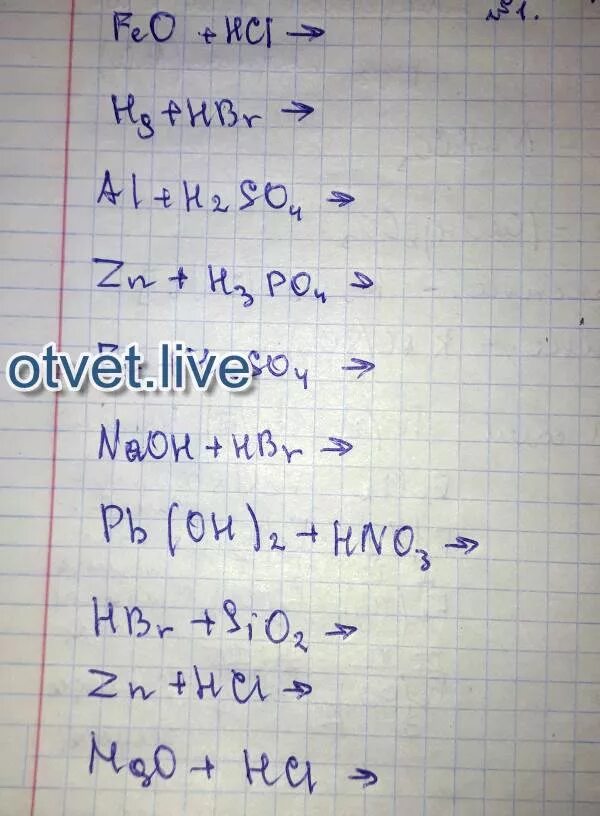 №1.
FeO + HCl →
Hg + HBr →
Al + H₂SO₄ →
Zn + H₃PO₄ →
otvet.live
SO₄ →
NaOH + HBr →
Pb(OH)₂ + HNO₃ →
HBr + SiO₂ →
Zn + HCl →
MgO + HCl →